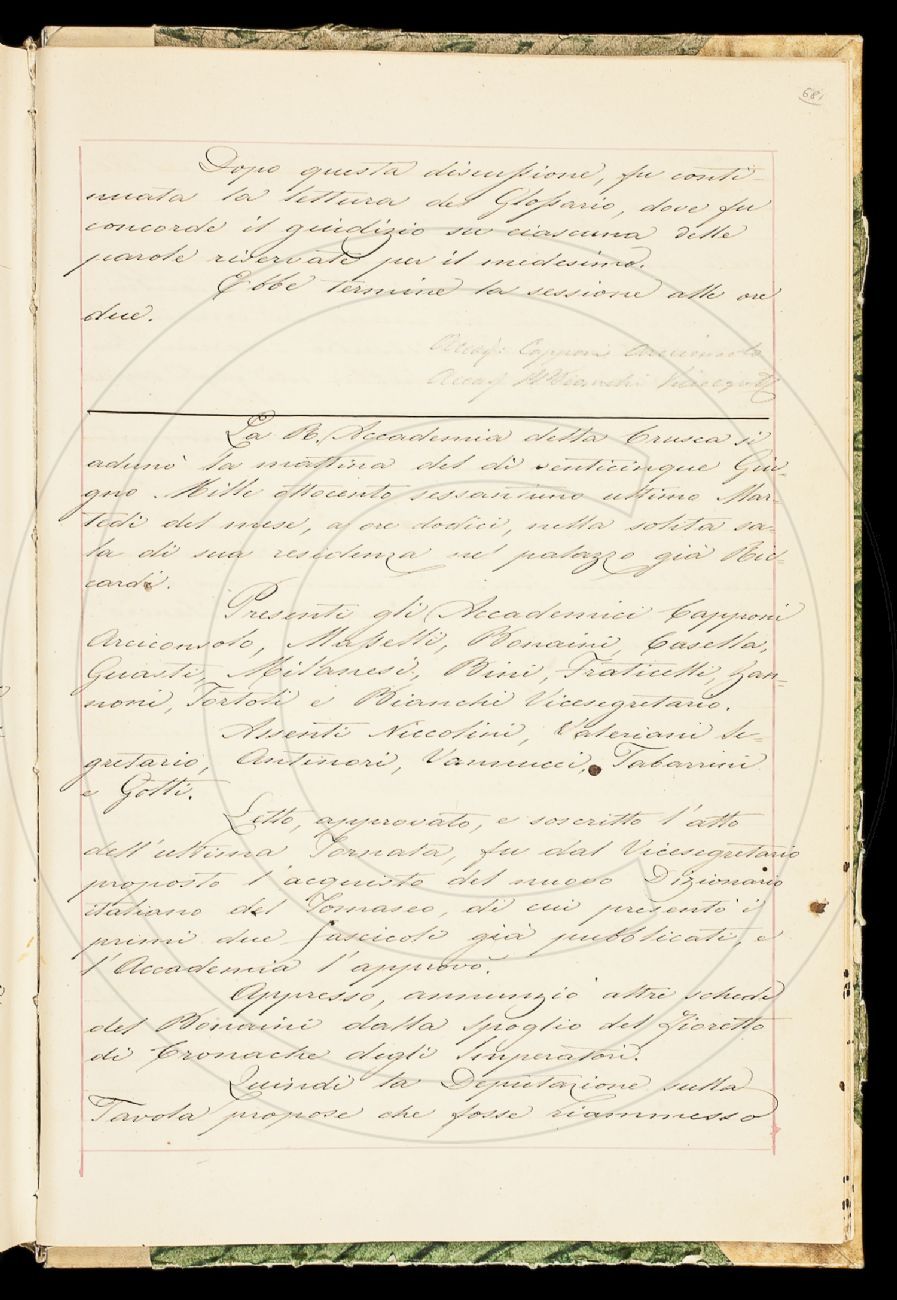 681
Dopo questa discussione, fu conti-
nuata la lettura del Glossario, dove fu
concorde il giudizio su ciascuna delle
parole riservate per il medesimo.
Ebbe termine la sessione alle ore
due.
Accad: Capponi Arciconsolo
Accad Bianchi Vicesegret
La R. Accademia della Crusca si
adunò la mattina del dì venticinque Giu-
gno Mille ottocento sessantuno ultimo Mar-
tedì del mese, a ore dodici, nella solita sa-
la di sua residenza ne' palazzo già Ric-
cardi.
Presenti gli Accademici Capponi
Arciconsolo, Masselli, Bonaini, Casella,
Guasti, Milanesi, Bini, Fraticelli, Zan-
noni, Tortoli e Bianchi Vicesegretario.
Assenti Niccolini, Valeriani Se-
gretario, Antinori, Vannucci, Tabarrini
e Gotti.
Letto, approvato, e soscritto l'atto
dell'ultima Tornata, fu dal Vicesegretario
proposto l'acquisto del nuovo Dizionario
italiano del Tomaseo, di cui presentò i
primi due fascicoli già pubblicati, e
l'Accademia l'approvò.
Appresso, annunziò altre schede
del Bonaini dalla Spoglio del Fioretto
di Cronache degli Imperatori.
Quindi la Deputazione sulla
Tavola propose che fosse riammesso